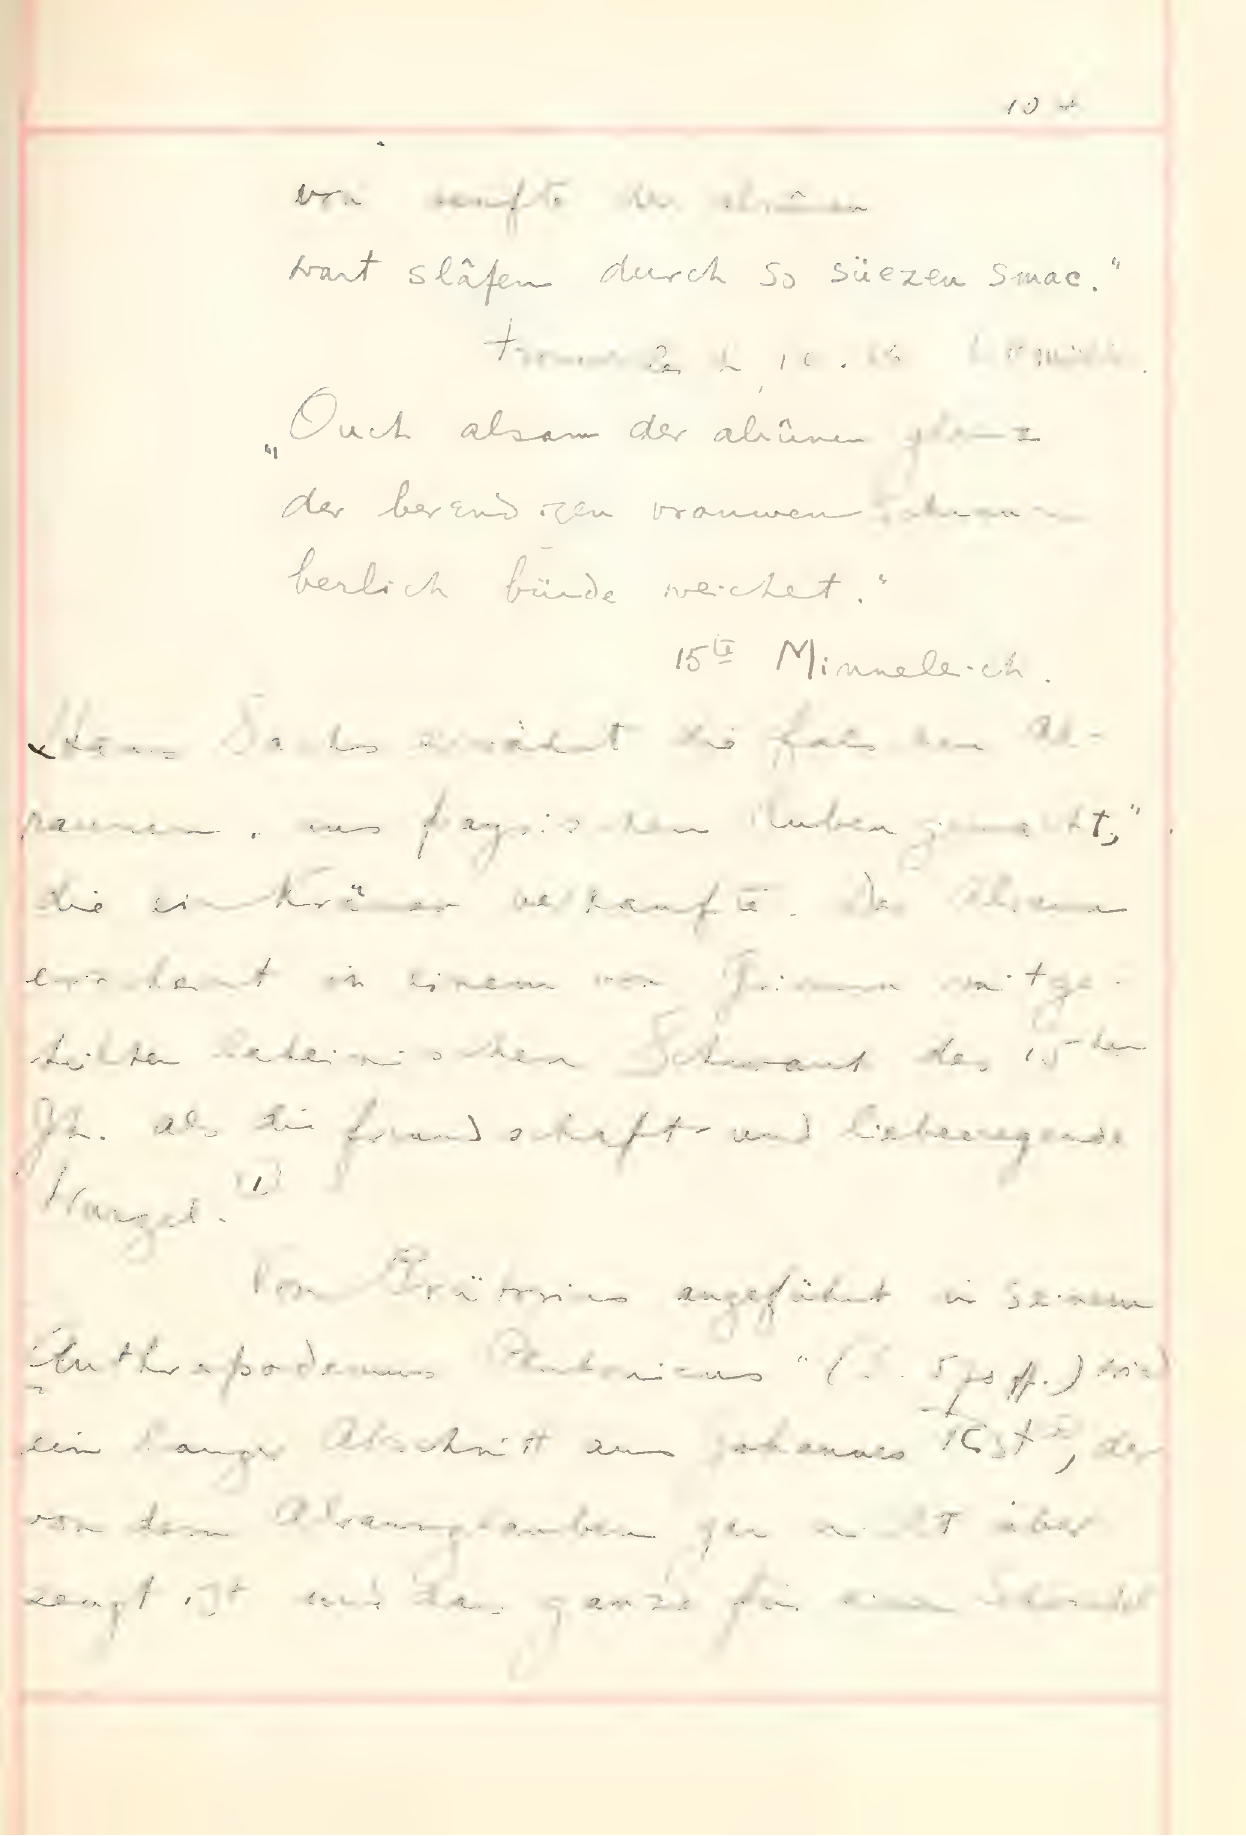 von senfte der alrûnen
wart slâfen durch so süezen smac."
„Ouch alsam der alrûnen glanz
der berendigen vrouwen schranz
berlich bürde weichet."
15te Minneleich.
Hans Sachs erwähnt die falschen Al-
raunen, aus Ruben gemacht,"
die ein Krämer verkaufte. Der Alraun
erscheint in einem von Grimm mitge-
teilten lateinischen Schwank des 15ten
Jh. als die freundschaft- und liebeerregende
Wurzel. (1)
Von Prätorius angeführt in seinem
Anthropodemus Plutonicus" ( ff.) wird
ein langer Abschnitt aus Johannes Rist, der
von dem Alraunglauben gar nicht über
zeugt ist und das ganze für einen